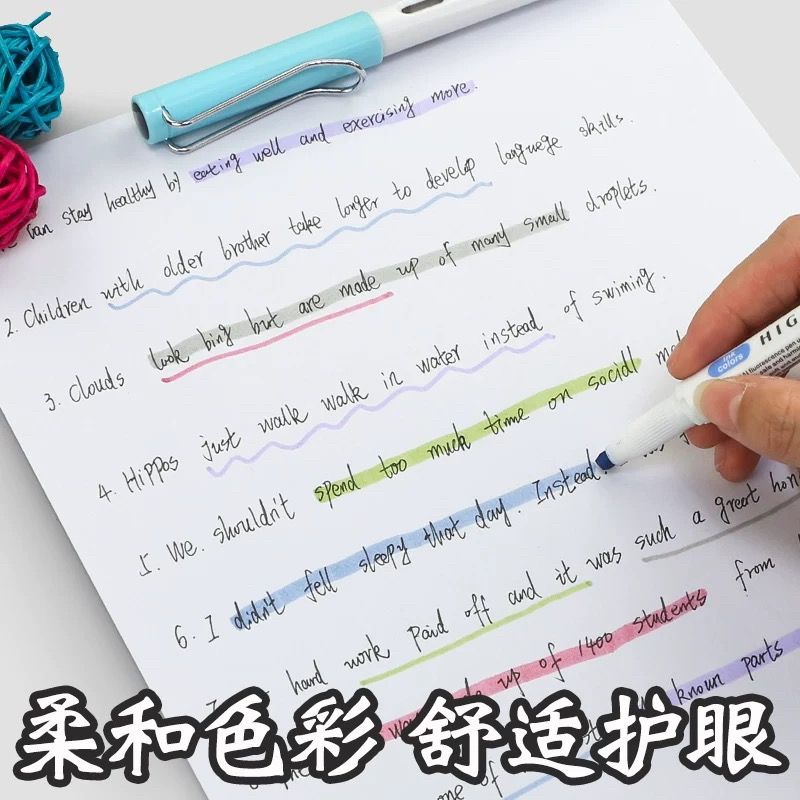 can stay healthy by eating well and exercising more.
2. Children with older brother take longer to develop languege skills.
3. Clouds look bing but are made up of many small droplets.
4. Hippos just walk walk in water instead of swiming.
5. We. shouldn't spend too much time on socidl
6. I didn't fell sleepy that day. Instead.
hard work paid off and it was such a great hon
up of 1400 students from
known parts
ink colors
HIG
柔和色彩 舒适护眼